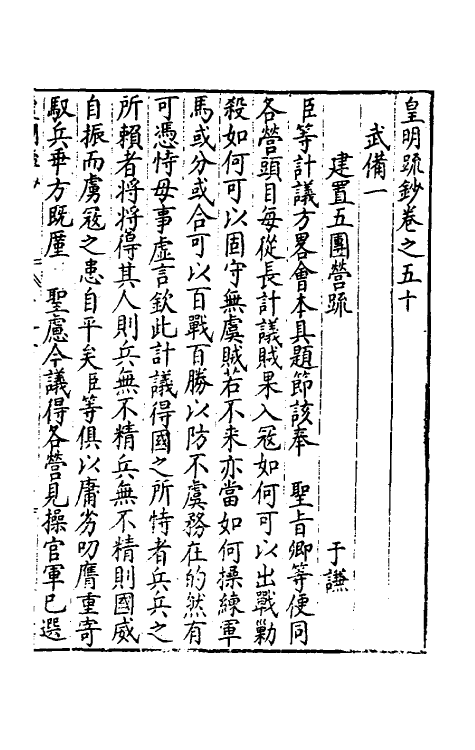 皇明疏鈔卷之五十
武備一
建置五團營疏　于謙
臣等計議方畧會本具題節該奉　聖旨卿等便同
各營頭目每從長計議賊果入寇如何可以出戰勦
殺如何可以固守無虞賊若不来亦當如何操練軍
馬或分或合可以百戰百勝以防不虞務在的然有
可憑恃毋事虛言欽此計議得國之所恃者兵兵之
所賴者將將得其人則兵無不精兵無不精則國威
自振而虜寇之患自平矣臣等俱以庸劣叨膺重寄
馭兵乖方既厪　聖慮今議得各營見操官軍已選